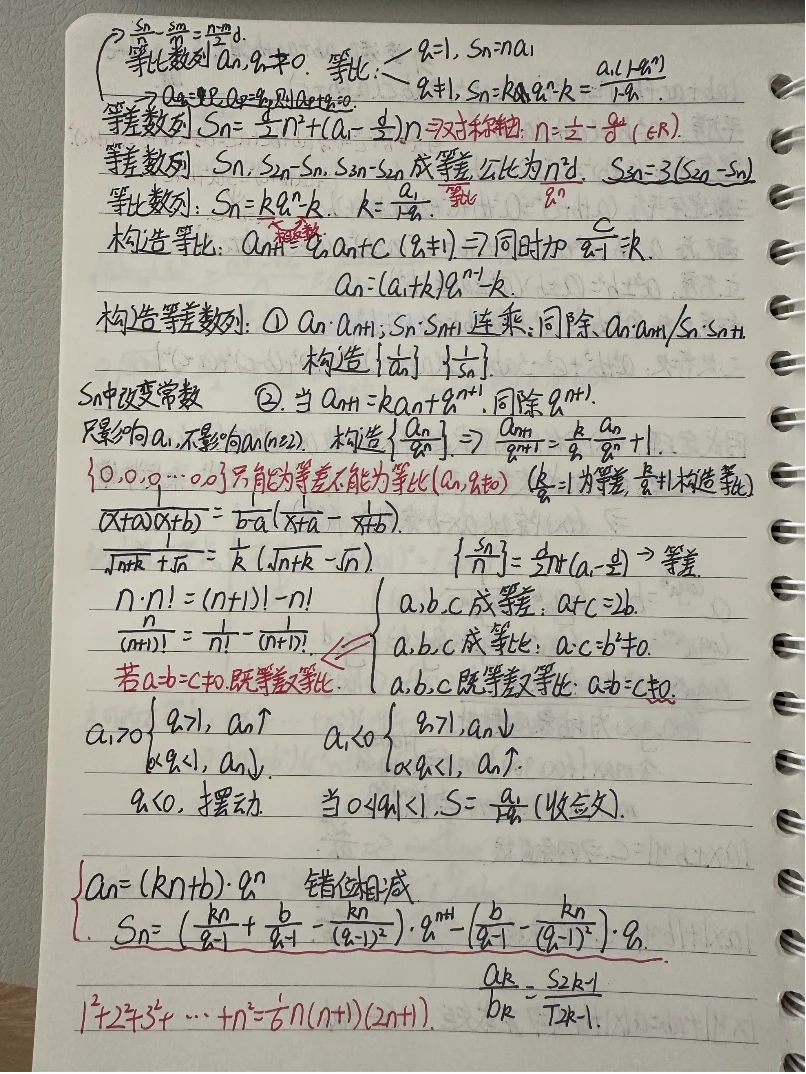 Sn/n - Sm/m = (n-m)/2 d.
等比数列 an, q≠0. 等比: q=1, Sn=na1
q≠1, Sn=kqⁿ-k = a1(1-qⁿ)/(1-q)
等差数列 Sn = d/2 n² + (a1 - d/2)n ⇒对称轴: n = 1/2 - a1/d (∈R).
等差数列 Sn, S2n-Sn, S3n-S2n 成等差, 公比为n²d. S3n=3(S2n-Sn)
等比 qⁿ
等比数列: Sn=kqⁿ-k. k= a1/(1-q).
相反数
构造等比: an+1 = q an+c (q≠1) ⇒ 同时加 c/(q-1) =k.
an=(a1+k)qⁿ⁻¹-k.
构造等差数列: ① an·an+1; Sn·Sn+1 连乘, 同除 an·an+1/Sn·Sn+1
构造{1/an} {1/Sn}.
Sn中改变常数 ②. 当 an+1=kan+qⁿ⁺¹. 同除qⁿ⁺¹.
只影响a1, 不影响an(n≥2). 构造{an/qⁿ} ⇒ an+1/qⁿ⁺¹ = k/q · an/qⁿ +1.
{0,0,0…0,0}只能为等差不能为等比(an,q≠0) (k/q=1为等差, k/q≠1构造等比)
1/((x+a)(x+b)) = 1/(b-a) (1/(x+a) - 1/(x+b)).
1/(√(n+k)+√n) = 1/k (√(n+k)-√n). {Sn/n} = d/2 n+(a1-d/2) → 等差
n·n! = (n+1)! - n! a,b,c 成等差: a+c=2b.
n/(n+1)! = 1/n! - 1/(n+1)! a,b,c 成等比: a·c=b²≠0.
若a=b=c≠0.既等差又等比. a,b,c 既等差又等比: a=b=c≠0.
a1>0 { q>1, an↑ a1<0 { q>1, an↓
0<q<1, an↓. 0<q<1, an↑.
q<0, 摆动. 当0<|q|<1, S= a1/(1-q) (收敛).
an=(kn+b)·qⁿ 错位相减
Sn= (kn/(q-1) + b/(q-1) - kn/(q-1)²)·qⁿ⁺¹ - (b/(q-1) - kn/(q-1)²)·q.
ak/bk = S2k-1/T2k-1.
1²+2²+3²+ … +n²= 1/6 n(n+1)(2n+1).